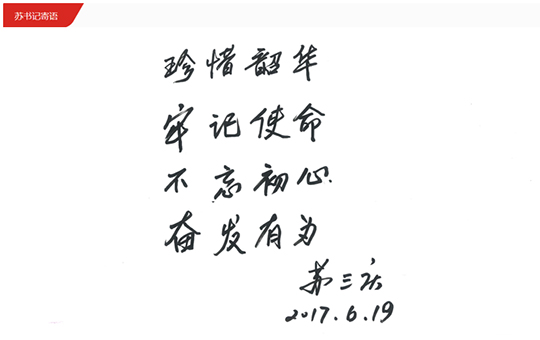 苏书记寄语
珍惜韶华
牢记使命
不忘初心
奋发有为
苏三庆
2017.6.19